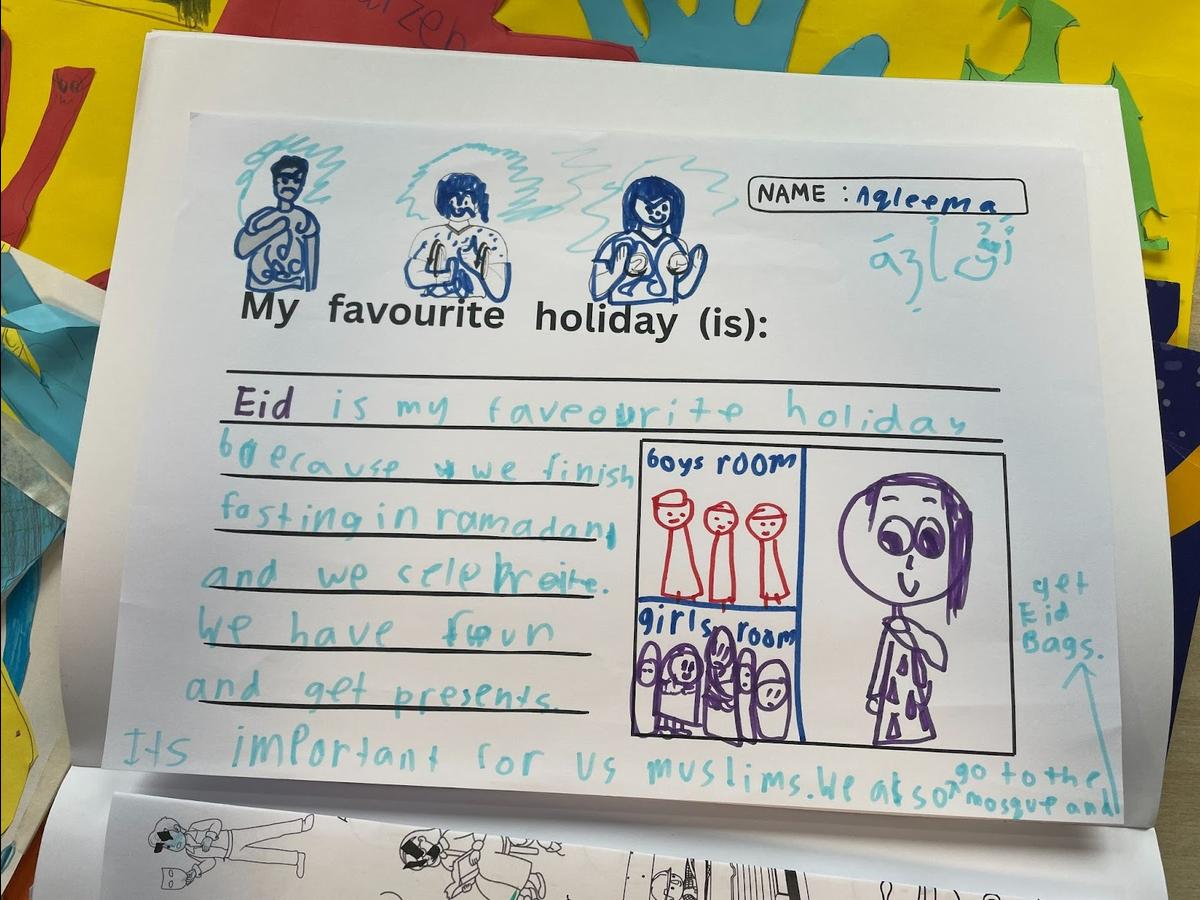 NAME : Aqleema
My favourite holiday (is):
Eid is my faveourite holiday
because we finish
fasting in ramadan,
and we celebraite.
We have fun
and get presents.
Its important for us muslims. We also go to the
mosque and
get
Eid
Bags.
boys room
girls room